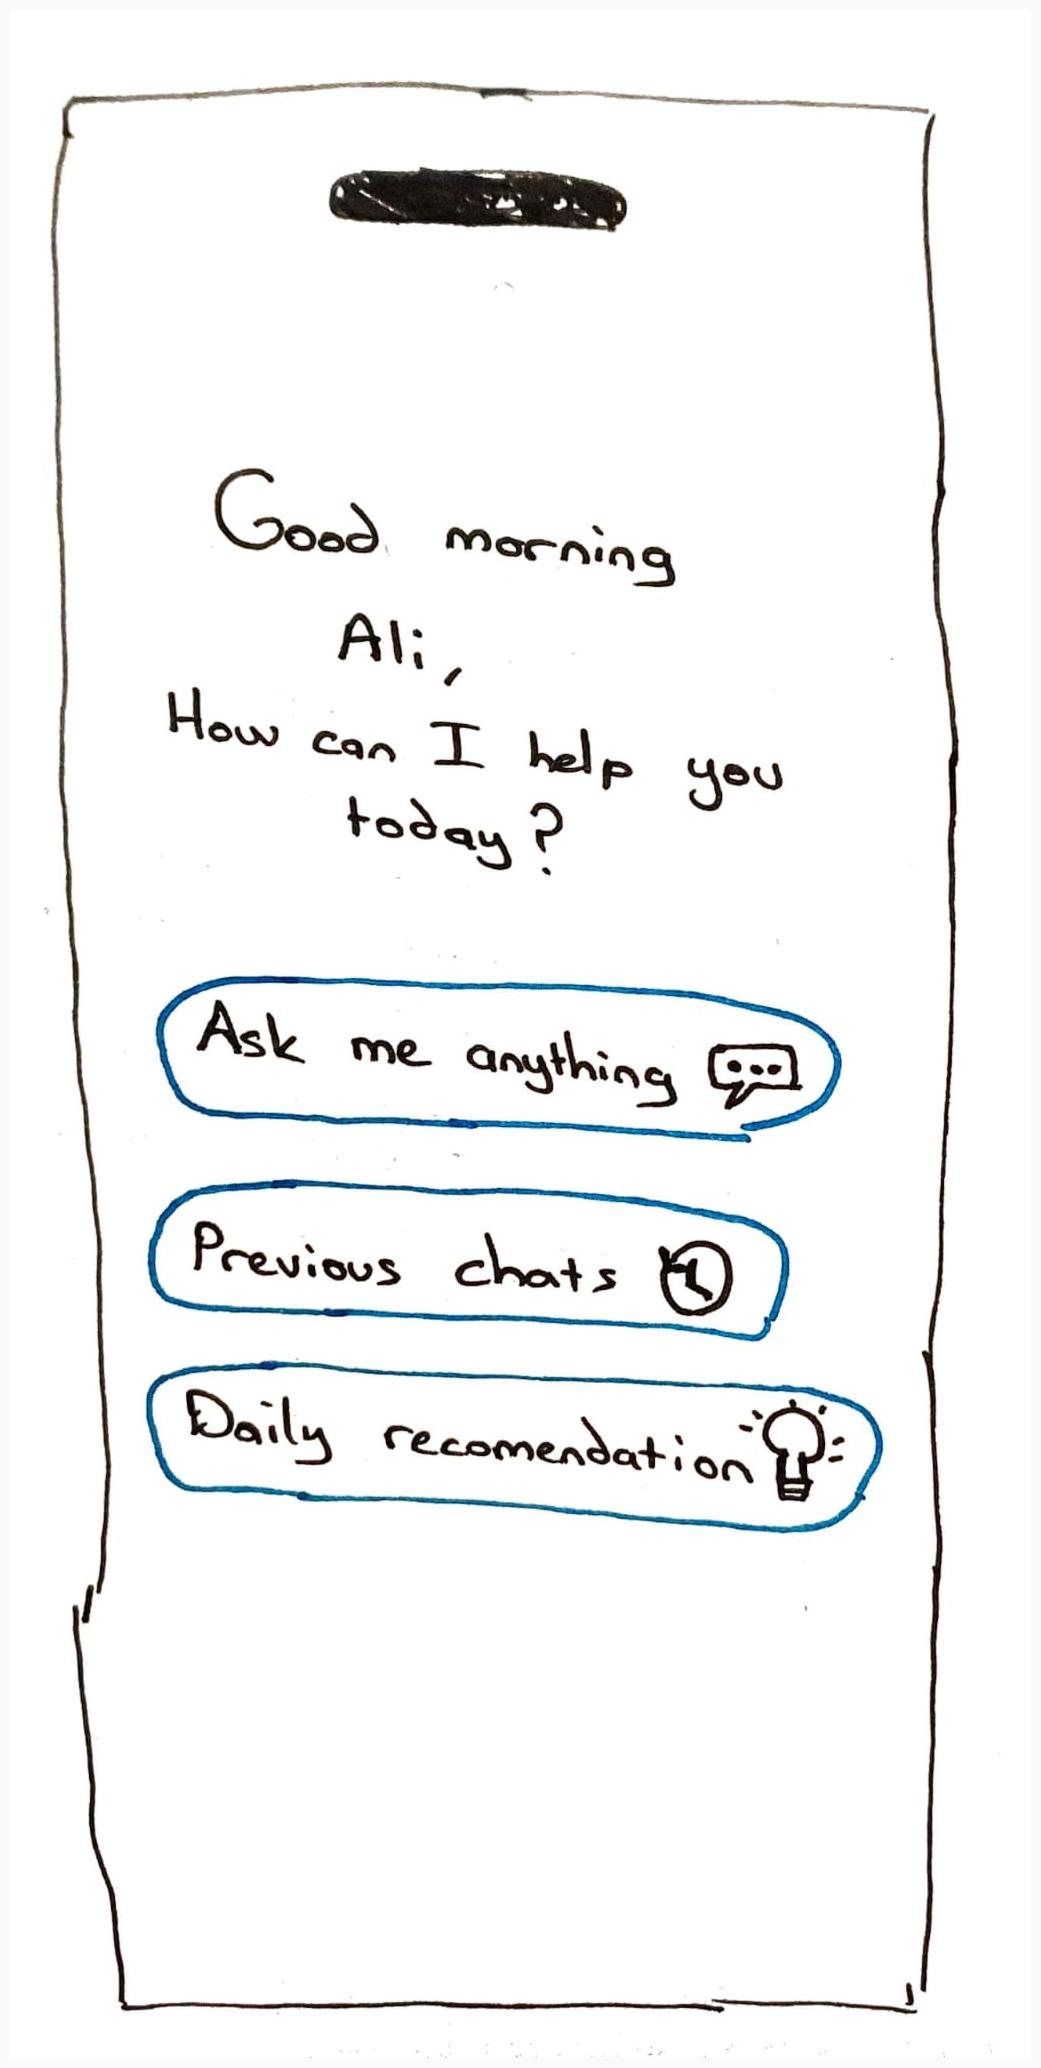 Good morning
Ali,
How can I help you
today?
Ask me anything
Previous chats
Daily recomendation